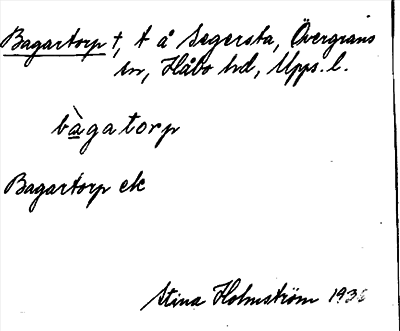 Bagartorp †, t å Segersta, Övergrans
sn, Håbo hd, Upps. l.
bàgatorp
Bagartorp ek
Stina Holmström